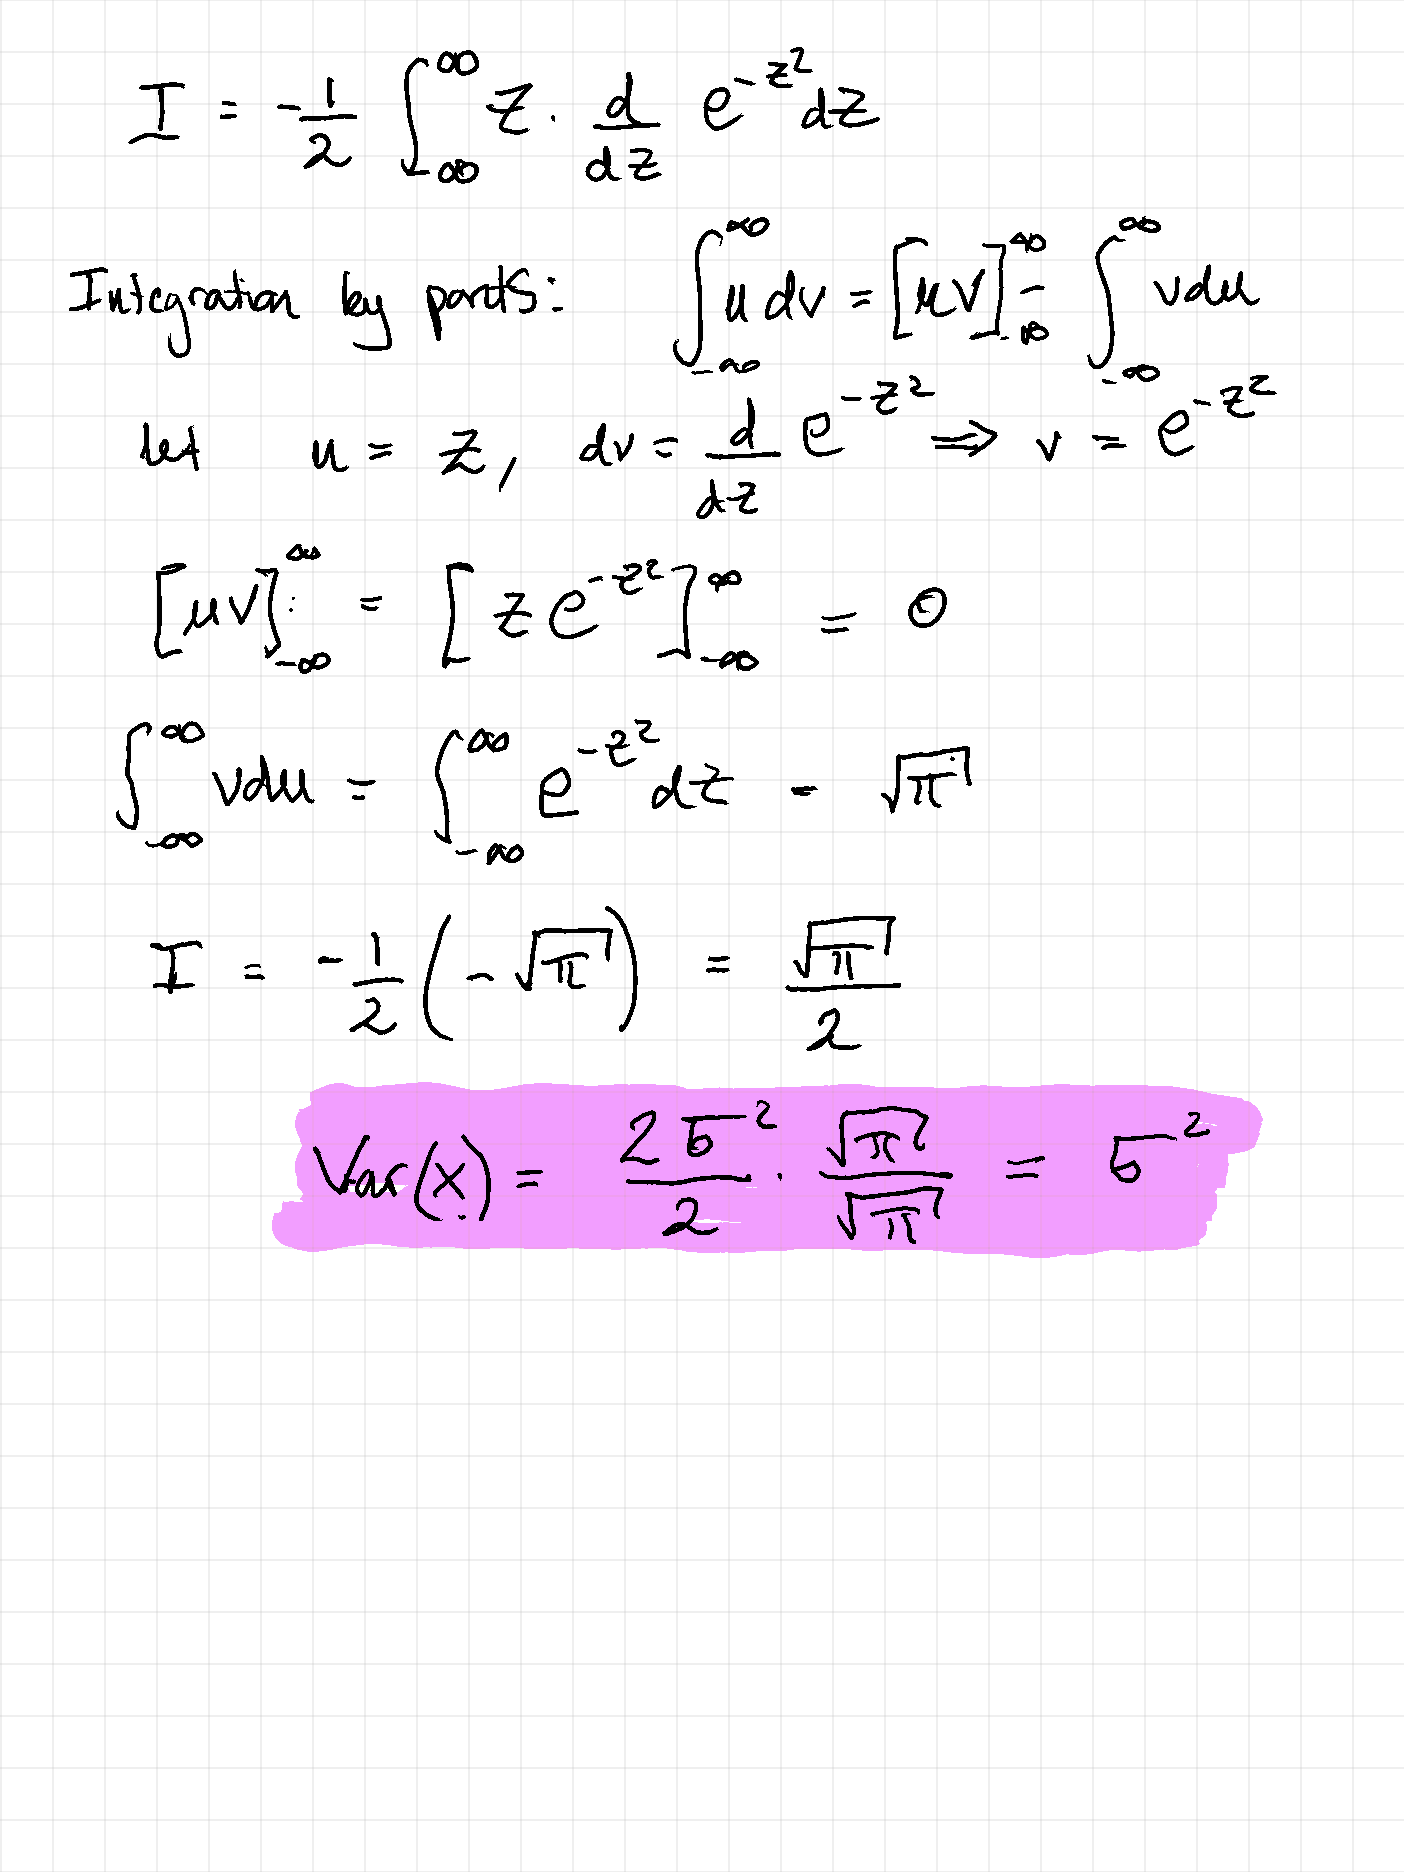 I = -1/2 ∫_{-∞}^{∞} z · d/dz e^{-z²} dz
Integration by parts: ∫_{-∞}^{∞} u dv = [uv]_{-∞}^{∞} - ∫_{-∞}^{∞} v du
let u = z, dv = d/dz e^{-z²} ⇒ v = e^{-z²}
[uv]_{-∞}^{∞} = [z e^{-z²}]_{-∞}^{∞} = 0
∫_{-∞}^{∞} v du = ∫_{-∞}^{∞} e^{-z²} dz = √π
I = -1/2 (-√π) = √π/2
Var(x) = 2σ²/2 · √π/√π = σ²